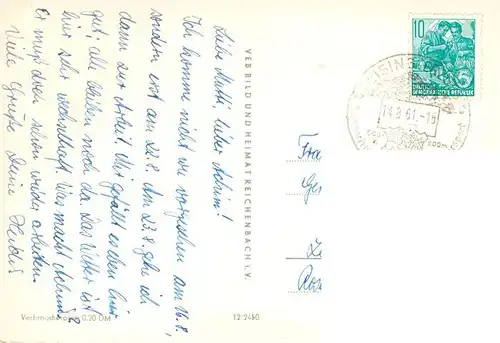 Liebe Mutti, lieber Achim!
Ich komme nicht wie vorgesehen am 16.8.,
sondern erst am 22.8. Den 23.8. gehe ich
dann zur Arbeit. Mir gefällt es hier
gut, alle bleiben noch da. Das Wetter ist
hier sehr wechselhaft. Was macht Achim?
Er muß doch schon wieder arbeiten.
Viele Grüße Deine Heidi!
VEB BILD UND HEIMAT REICHENBACH I. V.
Verkaufspreis 0,20 DM
12/2450
10
DEUTSCHE
DEMOKRATISCHE REPUBLIK
14.8.61.-16
Fra
Ge